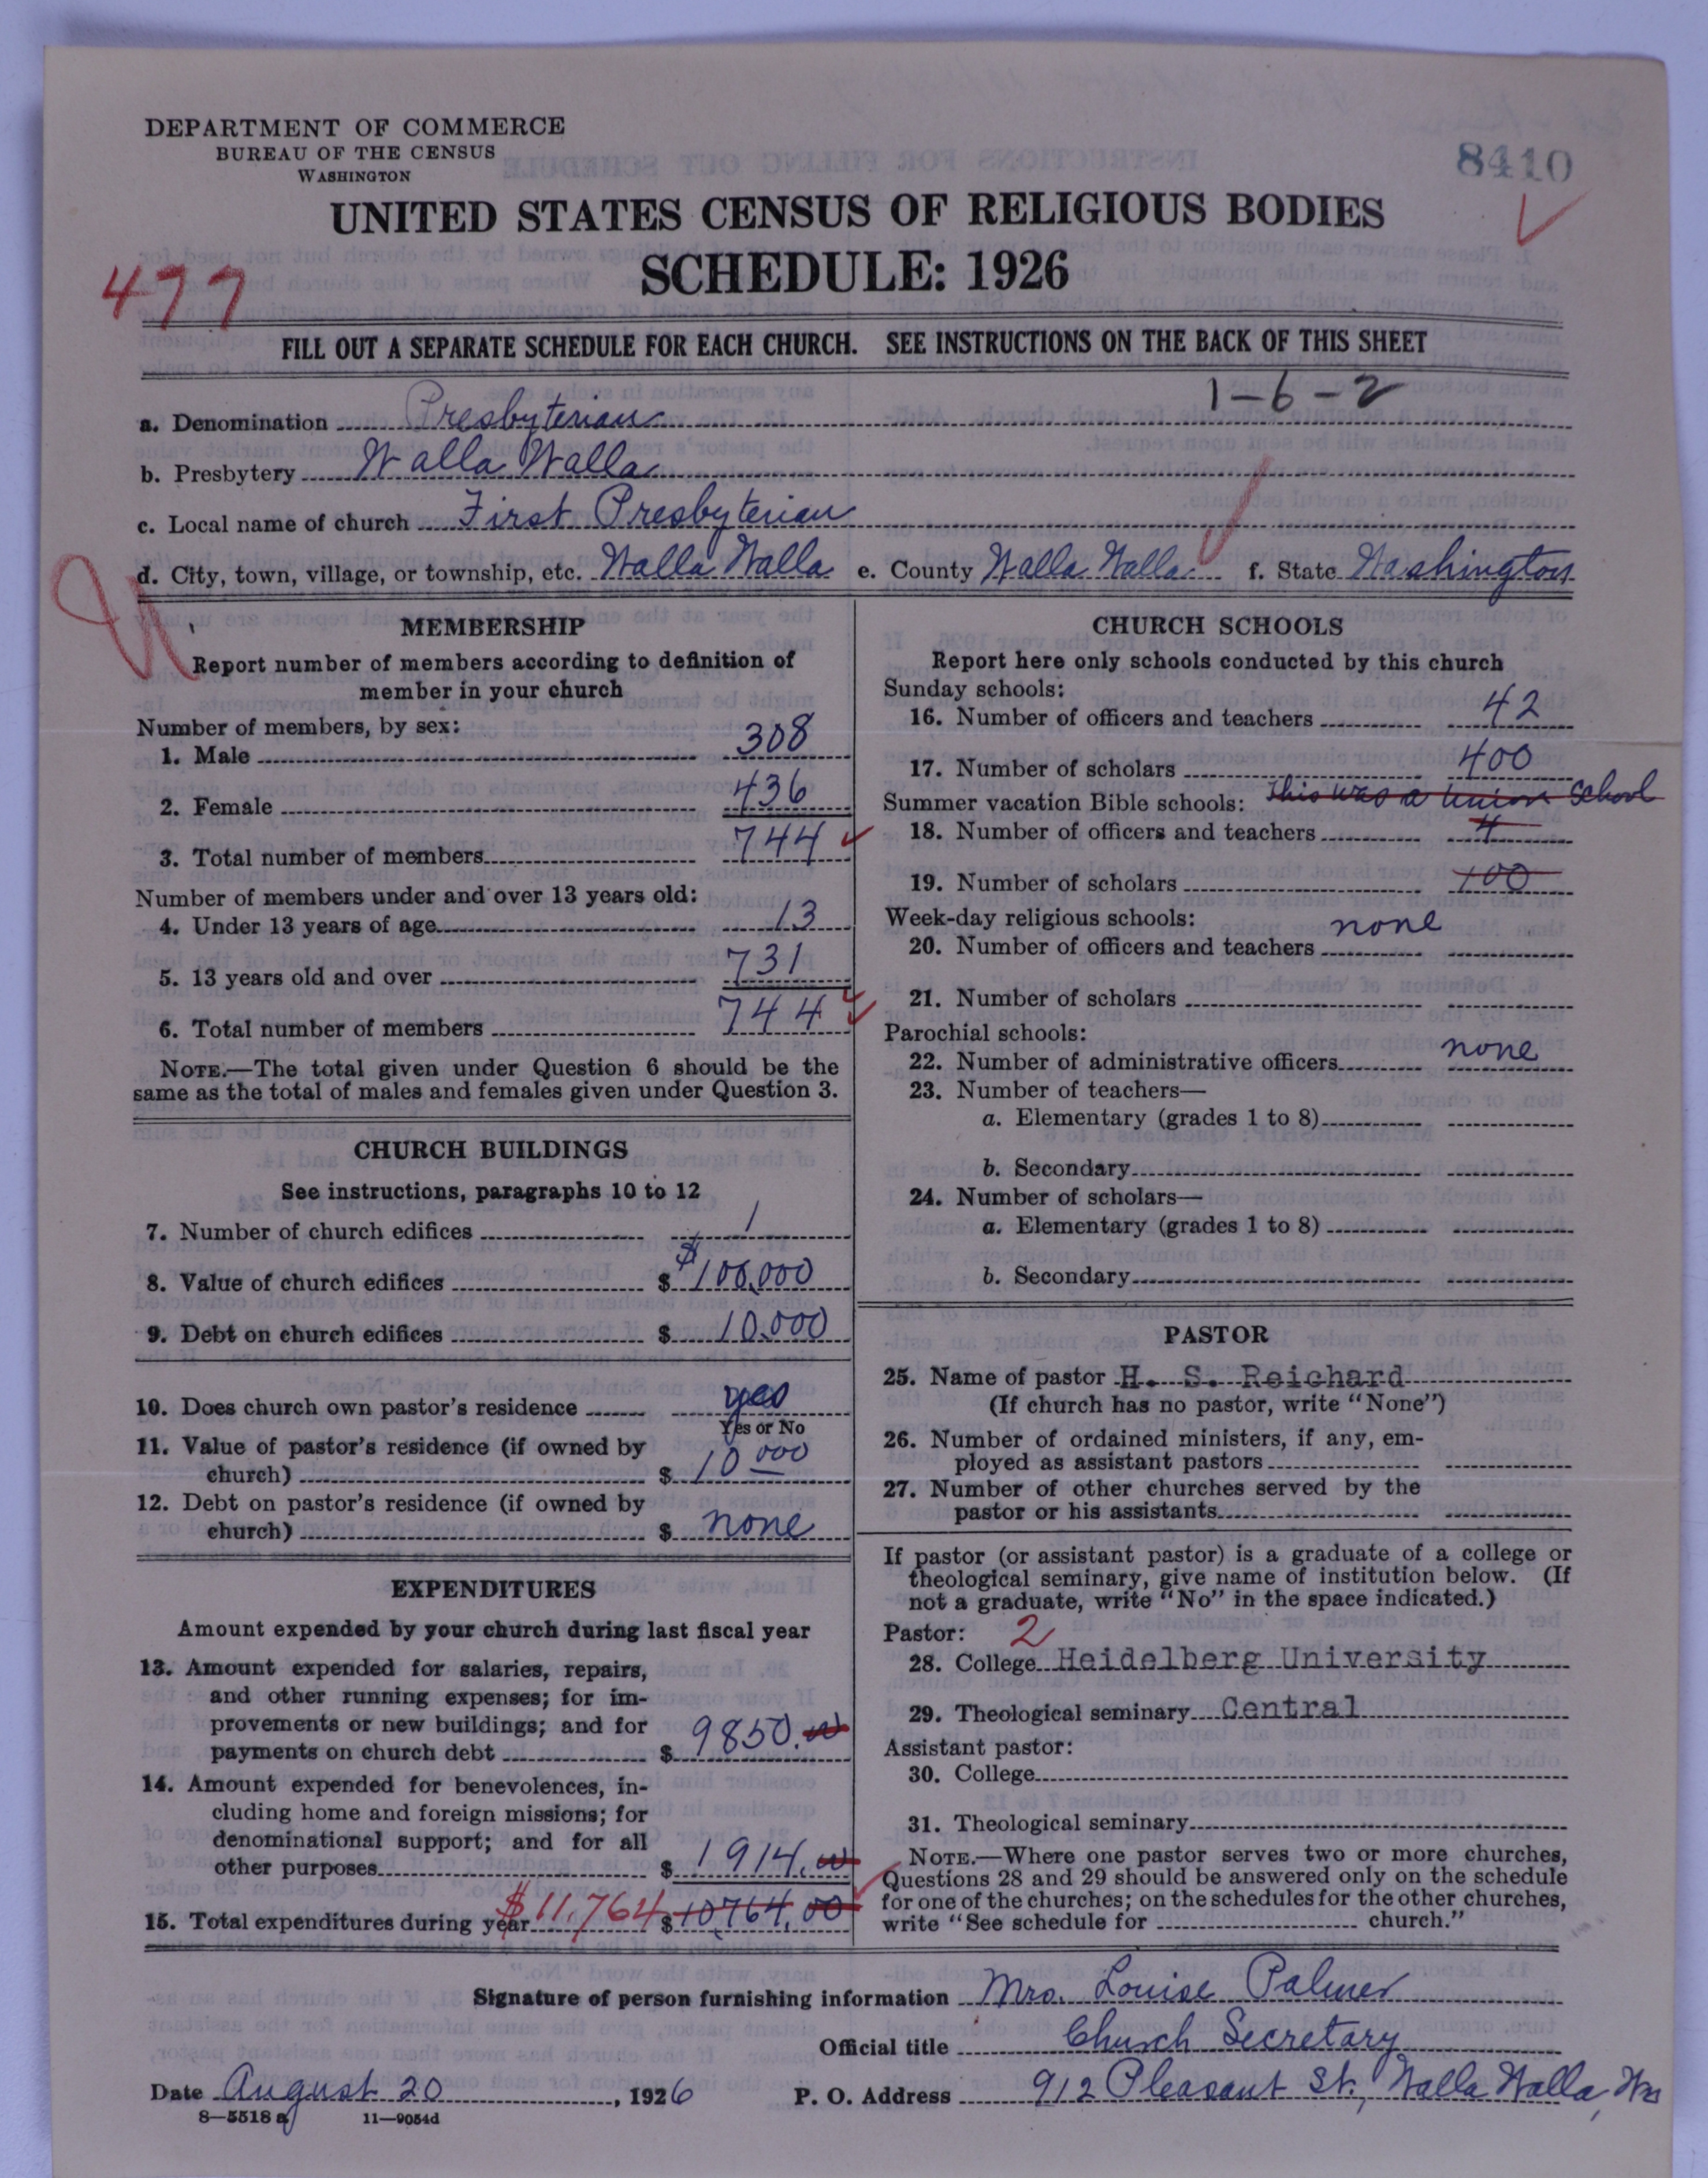 DEPARTMENT OF COMMERCE
BUREAU OF THE CENSUS
WASHINGTON
8410
UNITED STATES CENSUS OF RELIGIOUS BODIES
SCHEDULE: 1926
477
FILL OUT A SEPARATE SCHEDULE FOR EACH CHURCH. SEE INSTRUCTIONS ON THE BACK OF THIS SHEET
1-6-2
a. Denomination Presbyterian
b. Presbytery Walla Walla
c. Local name of church First Presbyterian
d. City, town, village, or township, etc. Walla Walla e. County Walla Walla f. State Washington
MEMBERSHIP
Report number of members according to definition of
member in your church
Number of members, by sex:
1. Male 308
2. Female 436
3. Total number of members 744
Number of members under and over 13 years old:
4. Under 13 years of age 13
5. 13 years old and over 731
6. Total number of members 744
NOTE.—The total given under Question 6 should be the
same as the total of males and females given under Question 3.
CHURCH BUILDINGS
See instructions, paragraphs 10 to 12
7. Number of church edifices 1
8. Value of church edifices $ $100,000
9. Debt on church edifices $ 10,000
10. Does church own pastor's residence yes
Yes or No
11. Value of pastor's residence (if owned by
church) $ 10 000
12. Debt on pastor's residence (if owned by
church) $ none
EXPENDITURES
Amount expended by your church during last fiscal year
13. Amount expended for salaries, repairs,
and other running expenses; for im-
provements or new buildings; and for
payments on church debt $ 9850.00
14. Amount expended for benevolences, in-
cluding home and foreign missions; for
denominational support; and for all
other purposes $ 1914.00
15. Total expenditures during year $11,764 $ 10,764.00
CHURCH SCHOOLS
Report here only schools conducted by this church
Sunday schools:
16. Number of officers and teachers 42
17. Number of scholars 400
Summer vacation Bible schools: This was a Union School
18. Number of officers and teachers 4
19. Number of scholars 100
Week-day religious schools: none
20. Number of officers and teachers
21. Number of scholars
Parochial schools:
22. Number of administrative officers none
23. Number of teachers—
a. Elementary (grades 1 to 8)
b. Secondary
24. Number of scholars—
a. Elementary (grades 1 to 8)
b. Secondary
PASTOR
25. Name of pastor H. S. Reichard
(If church has no pastor, write "None")
26. Number of ordained ministers, if any, em-
ployed as assistant pastors
27. Number of other churches served by the
pastor or his assistants
If pastor (or assistant pastor) is a graduate of a college or
theological seminary, give name of institution below. (If
not a graduate, write "No" in the space indicated.)
Pastor: 2
28. College Heidelberg University
29. Theological seminary Central
Assistant pastor:
30. College
31. Theological seminary
NOTE.—Where one pastor serves two or more churches,
Questions 28 and 29 should be answered only on the schedule
for one of the churches; on the schedules for the other churches,
write "See schedule for church."
Signature of person furnishing information Mrs. Louise Palmer
Official title Church Secretary
Date August 20, 1926 P. O. Address 912 Pleasant St., Walla Walla, Wn
8—5518 a 11—9054d